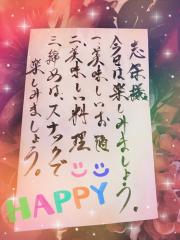 志保様
今日は楽しみましょう。
一、美味しいお酒
二、美味しい料理
三、締めは、スナックで
楽しみましょう。
HAPPY